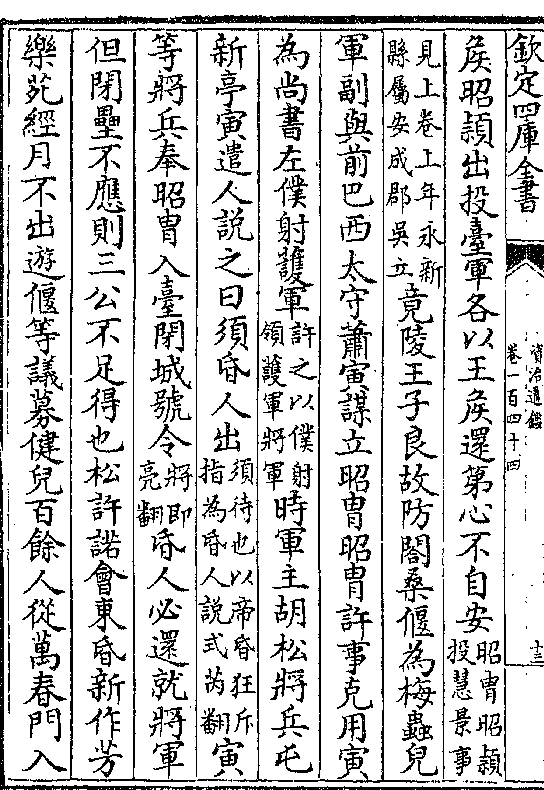 欽定四庫全書
資治通鑑
卷一百四十四
十三
侯昭穎出投臺軍各以王侯還第心不自安昭胄昭穎投慧景事
見上卷上年永新縣屬安成郡吳立竟陵王子良故防閤桑偃為梅蟲兒
軍副與前巴西太守蕭寅謀立昭胄昭胄許事克用寅
為尚書左僕射護軍許之以僕射領護軍將軍時軍主胡松將兵屯
新亭寅遣人說之曰須昏人出須待也以帝昏狂斥指為昏人說式芮翻寅
等將兵奉昭胄入臺閉城號令將即亮翻昏人必還就將軍
但閉壘不應則三公不足得也松許諾會東昏新作芳
樂苑經月不出遊偃等議募健兒百餘人從萬春門入